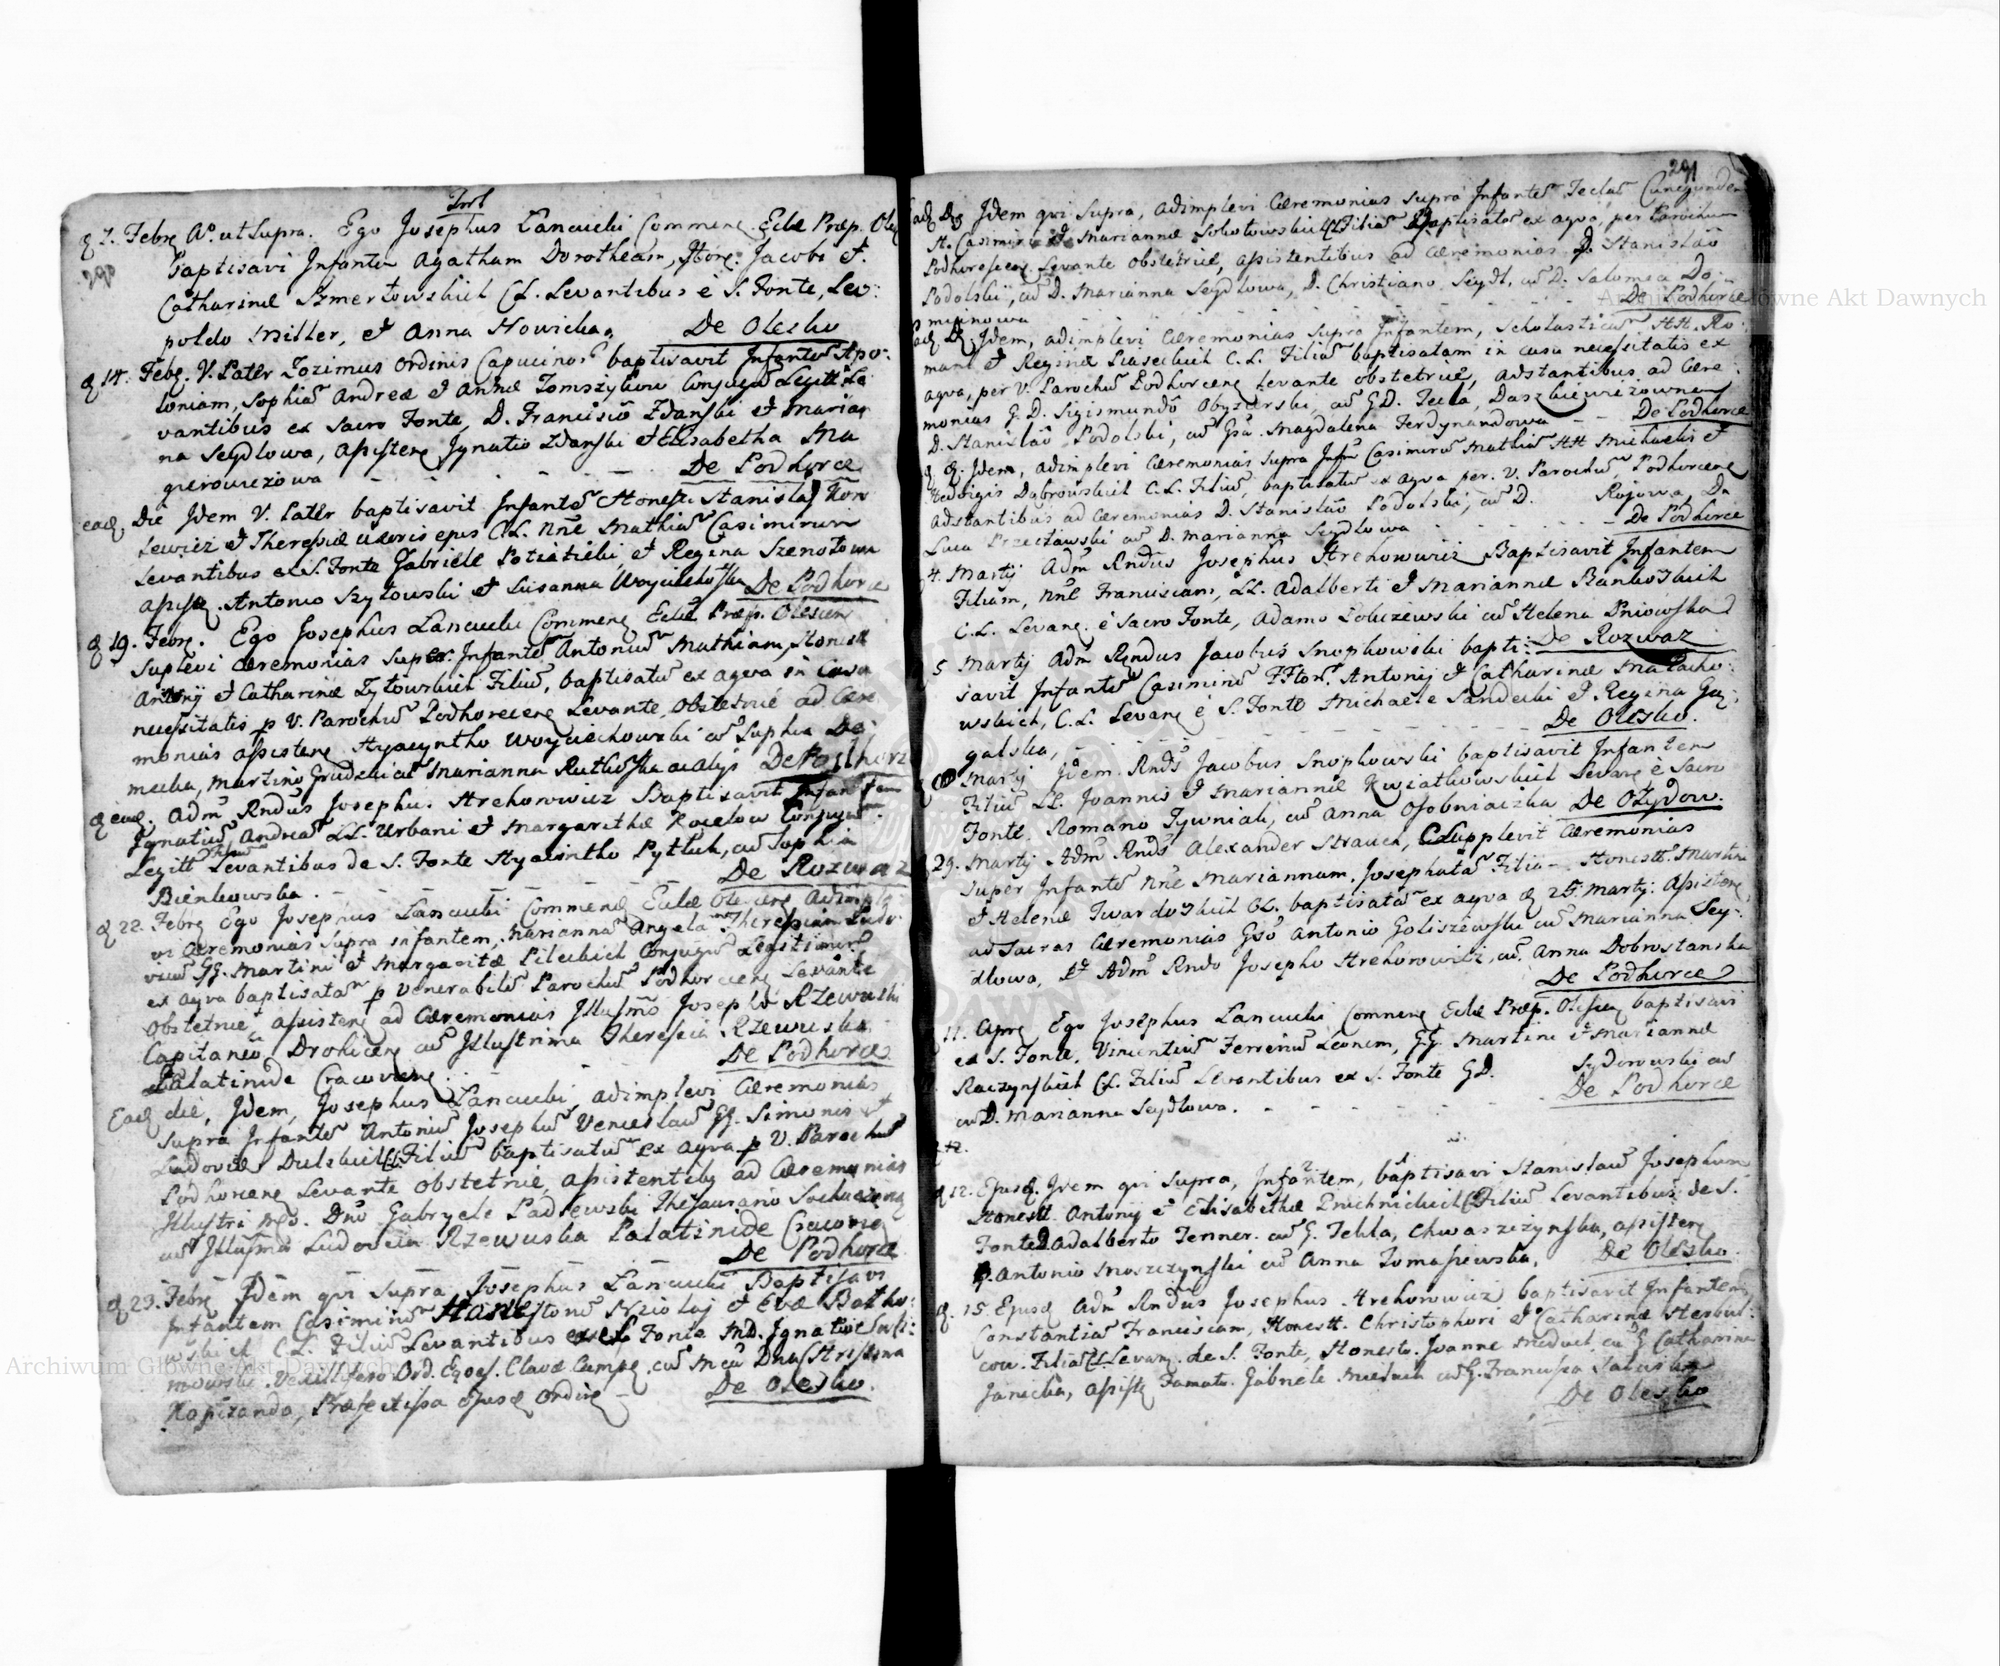 d 7. Febrę Aº. ut supra. Ego Josephus Łancucki Commenę. Eclæ Præp. Oles
baptisavi Infantem Agatham Dorotheam, Honę. Jacobi et
Catharinæ Szmertowskich C.L. Levantibus è S. Fonte, Leo:
poldo Miller, et Anna Nowicka,
De Olesko
d 14. Febę. V. Pater Zozimus Ordinis Capucinor baptisavit Infantem Apo:
loniam, Sophiam Andreæ et Annæ Tomszyków Conjugū Legitt. Le
vantibus ex Sacro Fonte, D. Francisco Zdanski et Marian
na Seydlowa, Assistenę Ignatio Zdanski et Elisabetha Ma
gierowiczowa
De Podhorce
eadę Die Idem V. Pater baptisavit Infantem Honest. Stanislaj Kow
lewicz et Theresiæ uxoris ejus C.L. Nnē Mathiam Casimirum
Levantibus ex S. Fonte Gabriele Potiaticki, et Regina Szenotowa
Assistę. Antonio Szytowski et Susanna Woyciechowska
De Podhorce
d 19. Febrę. Ego Josephus Łancucki Commenę Eclæ Præp. Olescen
suplevi Cæremonias super Infantem Antonium Mathiam, Honestt
Antonij et Catharinæ Zytowskich Filium, baptisatum ex aqua in casu
necessitatis p V. Parochum Podhorecenę Levante, Obstetrice ad Cære
monias Assistenę Hyacyntho Woyciechowski cum Sophia De
mecka, Martino Grudzki cum Marianna Rutkowska et alijs
De Podhorce
d eadę. Admˢ Rndus Josephus Hrehorowicz Baptisavit Infantem
Ignatium Andream LL. Urbani et Margarithæ Koselow Conjugum
Legitt Filium Levantibus de S. Fonte Hyacintho Pytluk, cum Sophia
Bienkowska
De Rozważ
d 22. Febrę Ego Josephus Łancucki Commenę Eclæ Olescenę Adimple
vi Cæremonias supra infantem, Mariannam Angelam Theresiam Ludo
vicam GG. Martini et Margaritæ Pileckich Conjugum Legitimorum
ex aqua baptisatam p Venerabilem Parochum Podhorcenę Levante
Obstetrice, assistenę ad Cæremonias Illustmo Josepho Rzewuski
Capitaneo Drohicenę cum Illustrima Theresia Rzewuska
Palatinide Cracovienę.
De Podhorce
Eadę die, Idem, Josephus Łancucki, adimplevi Cæremonias
supra Infantem Antonium Josephum Venceslaum GG. Simonis et
Ludovicæ Dulskich C.L. Filium baptisatum ex aqua p V. Parochum
Podhorcenę Levante Obstetrice, Assistentibę ad Cæremonias
Illustri Mgo. Dno Gabryele Padlewski Thesaurario
cum Illustma Ludovica Rzewuska Palatinide Cracovienę
De Podhorce
d 23. Febrę Idem qui supra Josephus Łancucki Baptisavi
Infantem Casimirum Honestorum et Evæ
C.L. Filium Levantibus ex S. Fonte MD. Ignatio
Vexilifero Ord. Eqoes. Clavæ Campę. cum Mca Dna Christina
Kopczanda, Præfectissa Ejusdę Ordinę
De Olesko.
291
Eadę D. Idem qui supra, adimplevi Cæremonias supra Infantem Teclam Cunegundem
H. Casimiri et Mariannæ Sobotowskich C.L. Filiam Baptisatam ex aqua, per Parochum
Podhorcecenę Levante Obstetrice, assistentibus ad Cæremonias D. Stanislao
Podolski, cum D. Marianna Seydlowa, D. Christiano Seydl, cum D. Salomea Do
minowa
De Podhorce
Eadę D. Idem, adimplevi Cæremonias supra Infantem, Scholasticam HH. Ro:
mani et Reginæ Liaseckich C.L. Filiam baptisatam in casu necessitatis ex
aqua, per V. Parochum Podhorcenę Levante Obstetrice, Adstantibus ad Cære:
monias G.D. Sigismundo Obyzerski, cum GD. Tecla, Daszkiewiczowna
D. Stanislao Podolski, cum Gsa. Magdalena Ferdynandowa
De Podhorce
d d. Idem, adimplevi Cæremonias supra Infm Casimirum Mathiam HH Michaelis et
Hedvigis Dąbrowskich C.L. Filium, baptisatum ex aqua per. V. Parochum Podhorcenę
Adstantibus ad Cæremonias D. Stanislao Podolski, cum D. Rojowa, Da
Luca Przecławski cum D. Marianna Seydlowa
De Podhorce
4. Martij Admˢ Rndus Josephus Hrehorowicz Baptisavit Infantem
Filiam, Nnē Franciscam, LL. Adalberti et Mariannæ Bankoskich
C.L. Levanę. è Sacro Fonte, Adamo Lobczewski cum Helena Pniowska
De Rozważ
5 Martij Admˢ Rndus Jacobus Snopkowski bapti:
savit Infantem Casimirum HHor. Antonij et Catharinæ Małacho:
wskich, C.L. Levanę è S. Fonte Michaele Sandecki et Regina Gaj:
galska,
De Olesko.
Martij Idem Rnds Jacobus Snopkowski baptisavit Infantem
Filium LL. Joannis et Mariannæ Kwiatkowskich Levanę è Sacro
Fonte. Romano Tywniak, cum Anna Osobniaczka
De Ożydow.
29. Martij Admˢ Rnds Alexander Strauch, Supplevit Cæremonias
super Infantem Nnē Mariannam, Josephatam Filiam Honestt. Martini
et Helenæ Twardoskich CL. baptisatam ex aqua d 25. Martij. Assistenę
ad Sacras Cæremonias Gso Antonio Goliszewski cum Marianna Sey:
dlowa, Et Admˢ Rndo Josepho Hrehorowicz, cum Anna Dobrostanska
De Podhorce
11. Aprę Ego Josephus Lancucki Commenę Eclæ Præp. Olescę baptisavi
ex S. Fonte, Vincentium Ferrerium Leonem, GG. Martini et Mariannæ
Raczynskich C.L. Filium Levantibus ex S. Fonte GD. Sydorowski cum
cum D. Marianna Seydlowa.
De Podhorce
d 12.
d 12. Ejusdę. Idem qui supra, Infantem, baptisavi Stanislaum Josephum
Honestt. Antonij et Elisabethæ Zwichnickich C.L. Filium Levantibus de S.
Fonte D. Adalberto Jenner. cum G. Tekla, Chwaszczynska, assistenę
D. Antonio Moszczynski cum Anna Tomasiewska,
De Olesko.
d. 15. Ejusdę Admˢ Rndus Josephus Hrehorowicz baptisavit Infantem
Constantiam Franciscam, Honestt. Christophori et Catharinæ Herbul:
cow. Filiam C.L. Levanę. de S. Fonte, Honesto. Joanne Meduch cum G Catharina
Janicka, assistę Famato. Gabriele Mielnik cum G. Francisca Saluska
De Olesko
Archiwum Główne Akt Dawnych
Archiwum Główne Akt Dawnych